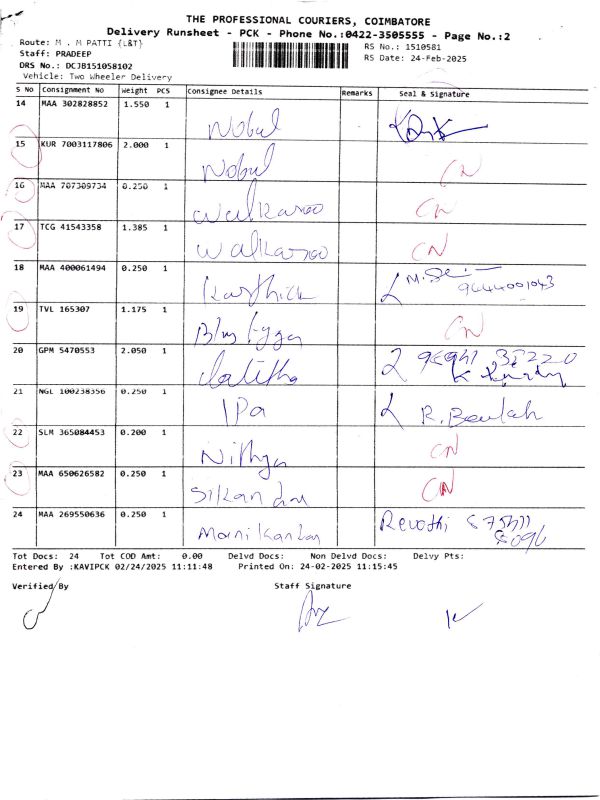 THE PROFESSIONAL COURIERS, COIMBATORE
Delivery Runsheet - PCK - Phone No.:0422-3505555 - Page No.:2
Route: M . M PATTI {L&T}
RS No.: 1510581
Staff: PRADEEP
RS Date: 24-Feb-2025
DRS No.: DCJB151058102
Vehicle: Two Wheeler Delivery
S No Consignment No Weight PCS Consignee Details Remarks Seal & Signature
14 MAA 302828852 1.550 1 Nobul
15 KUR 7003117806 2.000 1 Nobul CN
16 MAA 707309734 0.250 1 Walkaroo CN
17 TCG 41543358 1.385 1 Walkaroo CN
18 MAA 400061494 0.250 1 Karthick 9444001043
19 TVL 165307 1.175 1 CN
20 GPM 5470553 2.050 1 Lalitha
21 NGL 100238356 0.250 1 IPa R. Beulah
22 SLM 365084453 0.200 1 Nithya CN
23 MAA 650626582 0.250 1 Sikandar CN
24 MAA 269550636 0.250 1 Manikandan Revathi
Tot Docs: 24 Tot COD Amt: 0.00 Delvd Docs: Non Delvd Docs: Delvy Pts:
Entered By :KAVIPCK 02/24/2025 11:11:48 Printed On: 24-02-2025 11:15:45
Verified By Staff Signature